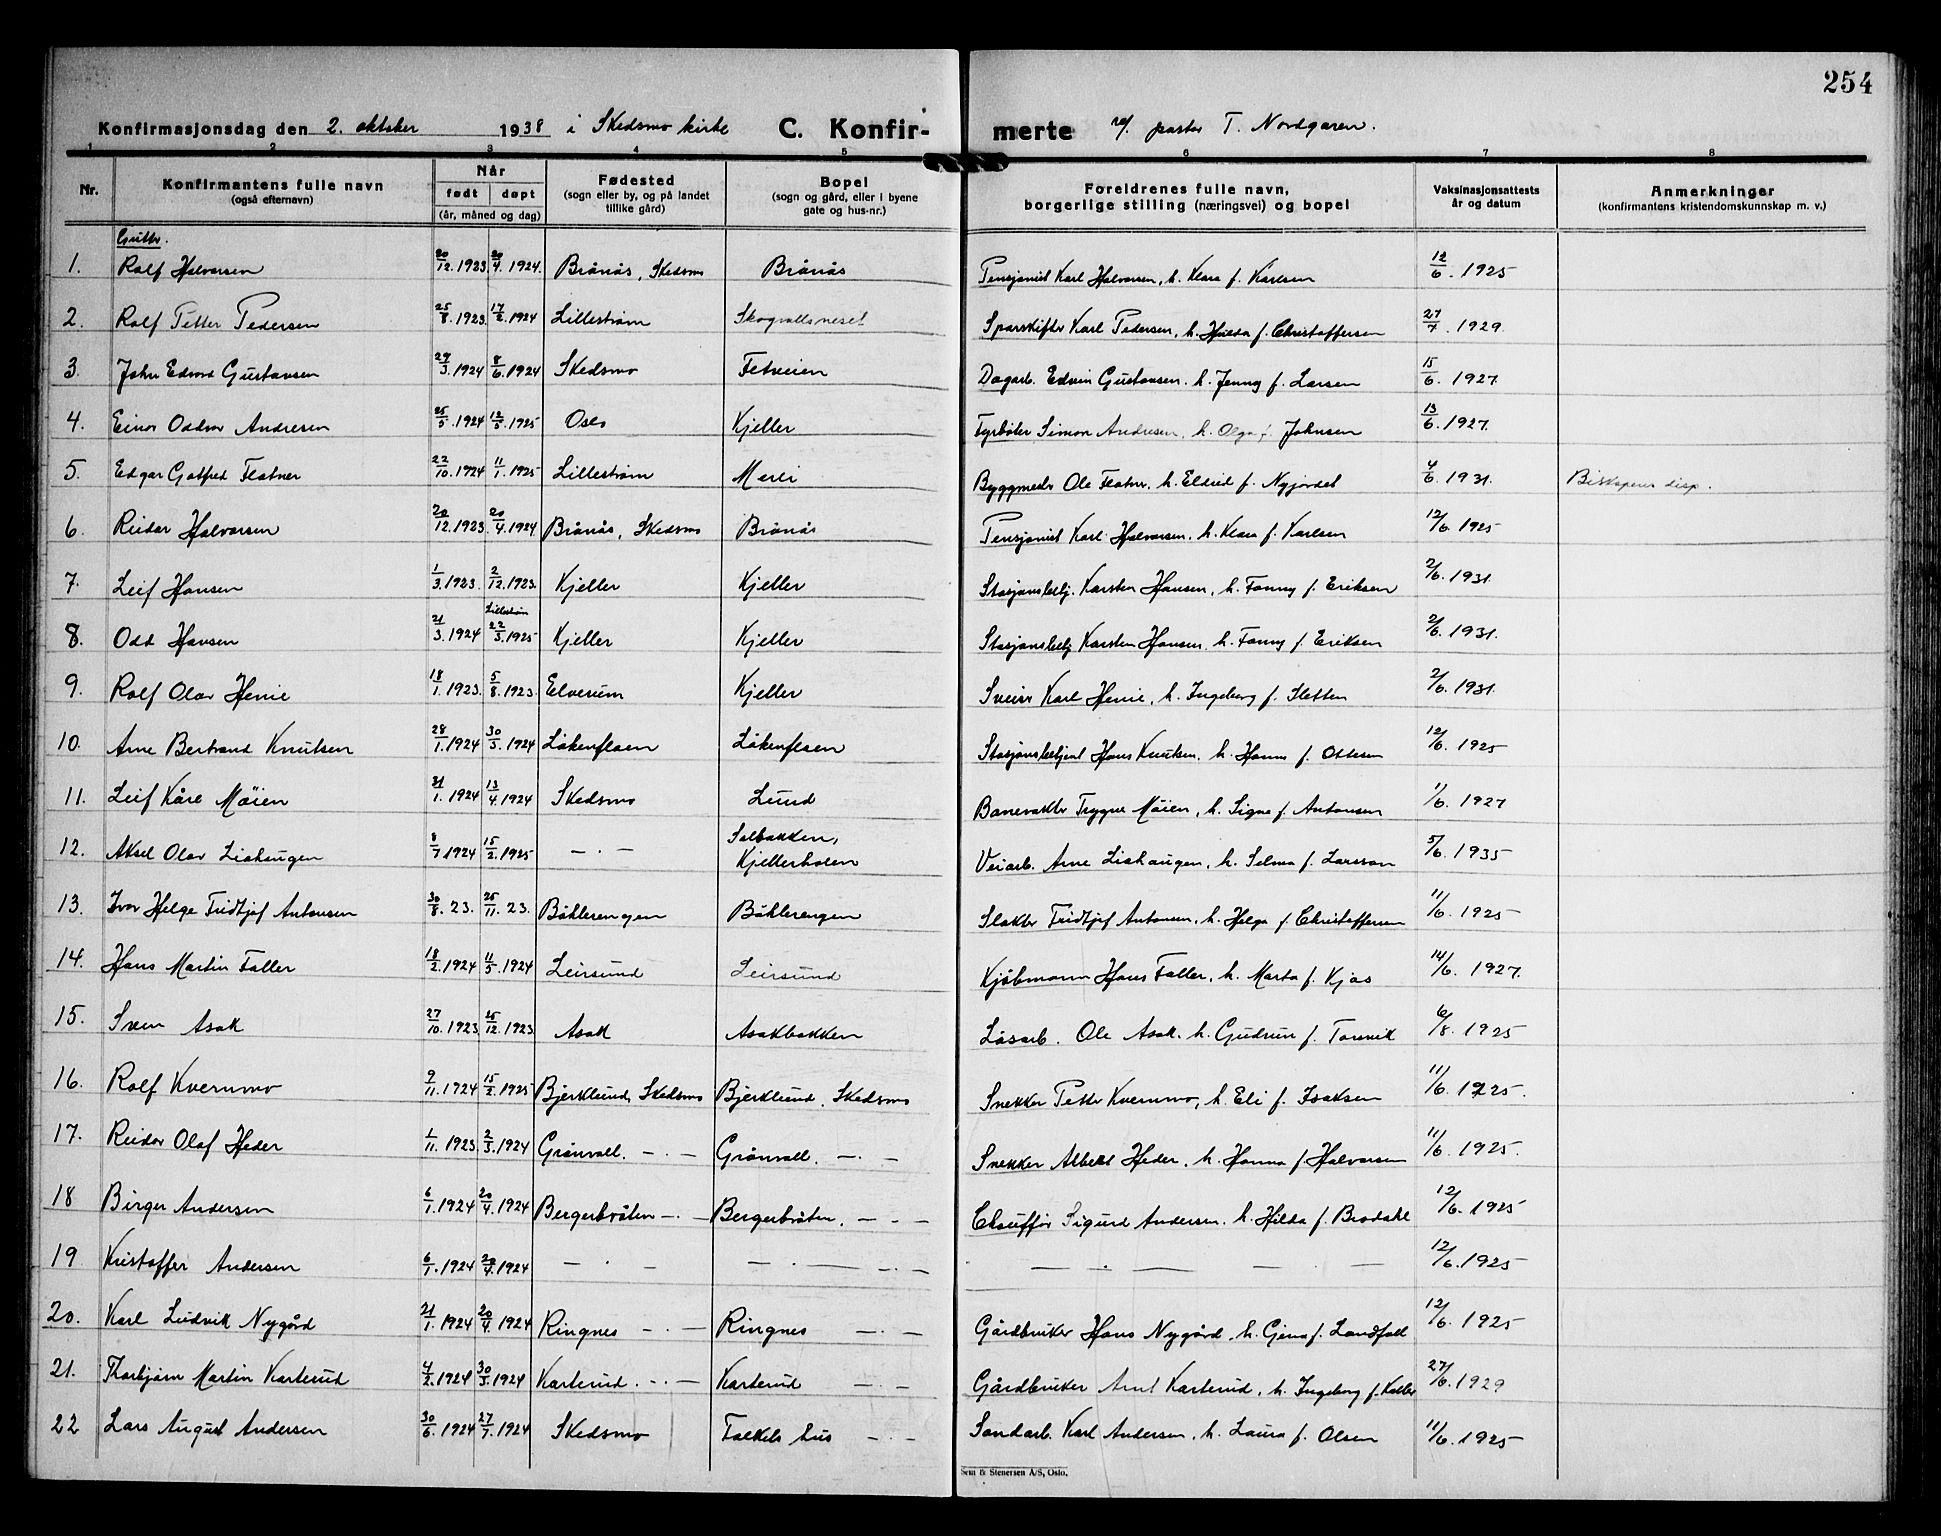 254
Konfirmasjonsdag den 2. oktober 1938 i Skedsmo kirke C. Konfir- merte v/. pastor T. Nordgaren.
1 2 3 4 5 6 7 8
Nr. Konfirmantens fulle navn (også efternavn) Når født døpt (år, måned og dag) Fødested (sogn eller by, og på landet tillike gård) Bopel (sogn og gård, eller i byene gate og hus-nr.) Foreldrenes fulle navn, borgerlige stilling (næringsvei) og bopel Vaksinasjonsattests år og datum Anmerkninger (konfirmantens kristendomskunnskap m. v.)
Gutter.
1. Rolf Halvorsen 20/12.1923. 20/4.1924. Brånås, Skedsmo Brånås Pensjonist Karl Halvorsen, h. Klara f. Karlsen 12/6.1925
2. Rolf Petter Pedersen 25/8.1923. 17/2.1924 Lillestrøm Skogvollsneset Sparskifter Karl Pedersen, h. Hulda f. Christoffersen 27/7.1929.
3. John Edvard Gustavsen 29/3.1924 8/6.1924 Skedsmo Fetveien Dagarb. Edvin Gustavsen. h. Jenny f. Larsen 15/6.1927.
4. Einar Oddvar Andresen 25/5.1924 12/5.1925 Oslo Kjeller Fyrbøter Simon Andresen, h. Olga f. Johnsen 13/6.1927.
5. Edgar Gotfred Flatner 22/10.1924 11/1.1925 Lillestrøm Merli Byggmester Ole Flatner, h. Eldrid f. Nyjordet 4/6.1931. Biskopens disp.
6. Reidar Halvorsen 20/12.1923. 20/4.1924 Brånås, Skedsmo Brånås Pensjonist Karl Halvorsen, h. Klara f. Karlsen 12/6.1925
7. Leif Hansen 1/3.1923. 2/12.1923. Kjeller Kjeller Stasjonsbetj. Karsten Hansen, h. Fanny f. Eriksen 2/6.1931.
8. Odd Hansen 21/3.1924 Lillestrøm 22/3.1925 Kjeller Kjeller Stasjonsbetj. Karsten Hansen, h. Fanny f. Eriksen 2/6.1931.
9. Rolf Olav Henie 18/1.1923. 5/8.1923. Elverum Kjeller Sveiser Karl Henie, h. Ingeborg f. Sletten 2/6.1931.
10. Arne Bertrand Knutsen 28/1.1924 30/3.1924 Løkenflaen Løkenflaen Stasjonsbetjent Hans Knutsen, h. Hanna f. Ottesen 12/6.1925
11. Leif Kåre Möien 31/1.1924 13/4.1924 Skedsmo Lund Banevokter Trygve Möien, h. Signe f. Antonsen 11/6.1927
12. Aksel Olav Liahaugen 8/7.1924 15/2.1925 — . — Solbakken, Kjellerholen Veiarb. Arne Liahaugen, h. Selma f. Larsson 5/6.1935
13. Ivar Helge Fridtjof Antonsen 30/8.23. 25/11.23. Bøhlerengen Bøhlerengen Slakter Fridtjof Antonsen, h. Helga f Christoffersen 11/6.1925
14. Hans Martin Faller 18/2.1924 11/5.1924 Leirsund Leirsund Kjøbmann Hans Faller, h. Marta f. Kjos 14/6.1927.
15. Sven Asak 27/10.1923. 25/12.1923. Asak Asakbakken Løsarb. Ole Asak. h. Gudrun f. Torsvik 6/8.1925
16. Rolf Kvernmo 9/11.1924 15/2.1925 Bjerklund, Skedsmo Bjerklund, Skedsmo Snekker Petter Kvernmo, h. Eli f. Isaksen 11/6.1925.
17. Reidar Olaf Heder 1/11.1923. 2/3.1924 Grønvoll. — . — Grønvoll. — . — Snekker Albert Heder, h. Hanna f Halvorsen 11/6.1925.
18 Birger Andersen 6/1.1924 20/4.1924 Bergerbråten — . — Bergerbråten. — . — Chauffør Sigurd Andersen. h. Hilda f. Brodahl 12/6.1925
19 Kristoffer Andersen 6/1.1924 20/4.1924 — . — — . — — . — — . — — . — 12/6.1925
20. Karl Ludvik Nygård 21/1.1924 20/4.1924 Ringnes — . — Ringnes — . — Gårdbruker Hans Nygård, h. Gjena f. Landfall 12/6.1925
21. Thorbjørn Martin Karterud 4/2.1924 30/3.1924 Karterud. — . — Karterud — . — Gårdbruker Arnt Karterud, h. Ingeborg f. 27/6.1929
22 Lars August Andersen 30/6.1924 27/7.1924 Skedsmo Falkels hus — . — Sandarb. Karl Andersen, h. Laura f. Olsen 11/6.1925
Sem & Stenersen A/S, Oslo.